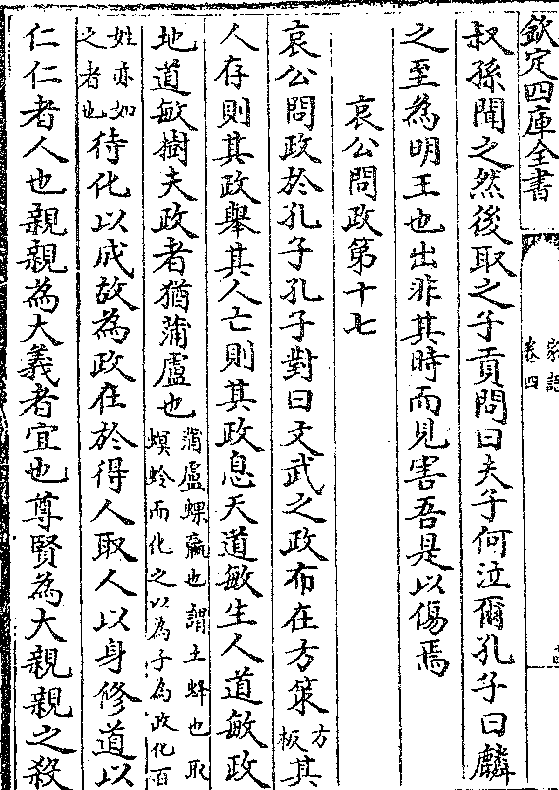 欽定四庫全書
家語
卷四
叔孫聞之然後取之子貢問曰夫子何泣爾孔子曰麟
之至為明王也出非其時而見害吾是以傷焉
哀公問政第十七
哀公問政於孔子孔子對曰文武之政布在方策方板其
人存則其政舉其人亡則其政息天道敏生人道敏政
地道敏樹夫政者猶蒲盧也蒲盧蜾蠃也謂土蜂也取螟蛉而化之以為子為政化百
姓亦如之者也待化以成故為政在於得人取人以身修道以
仁仁者人也親親為大義者宜也尊賢為大親親之殺